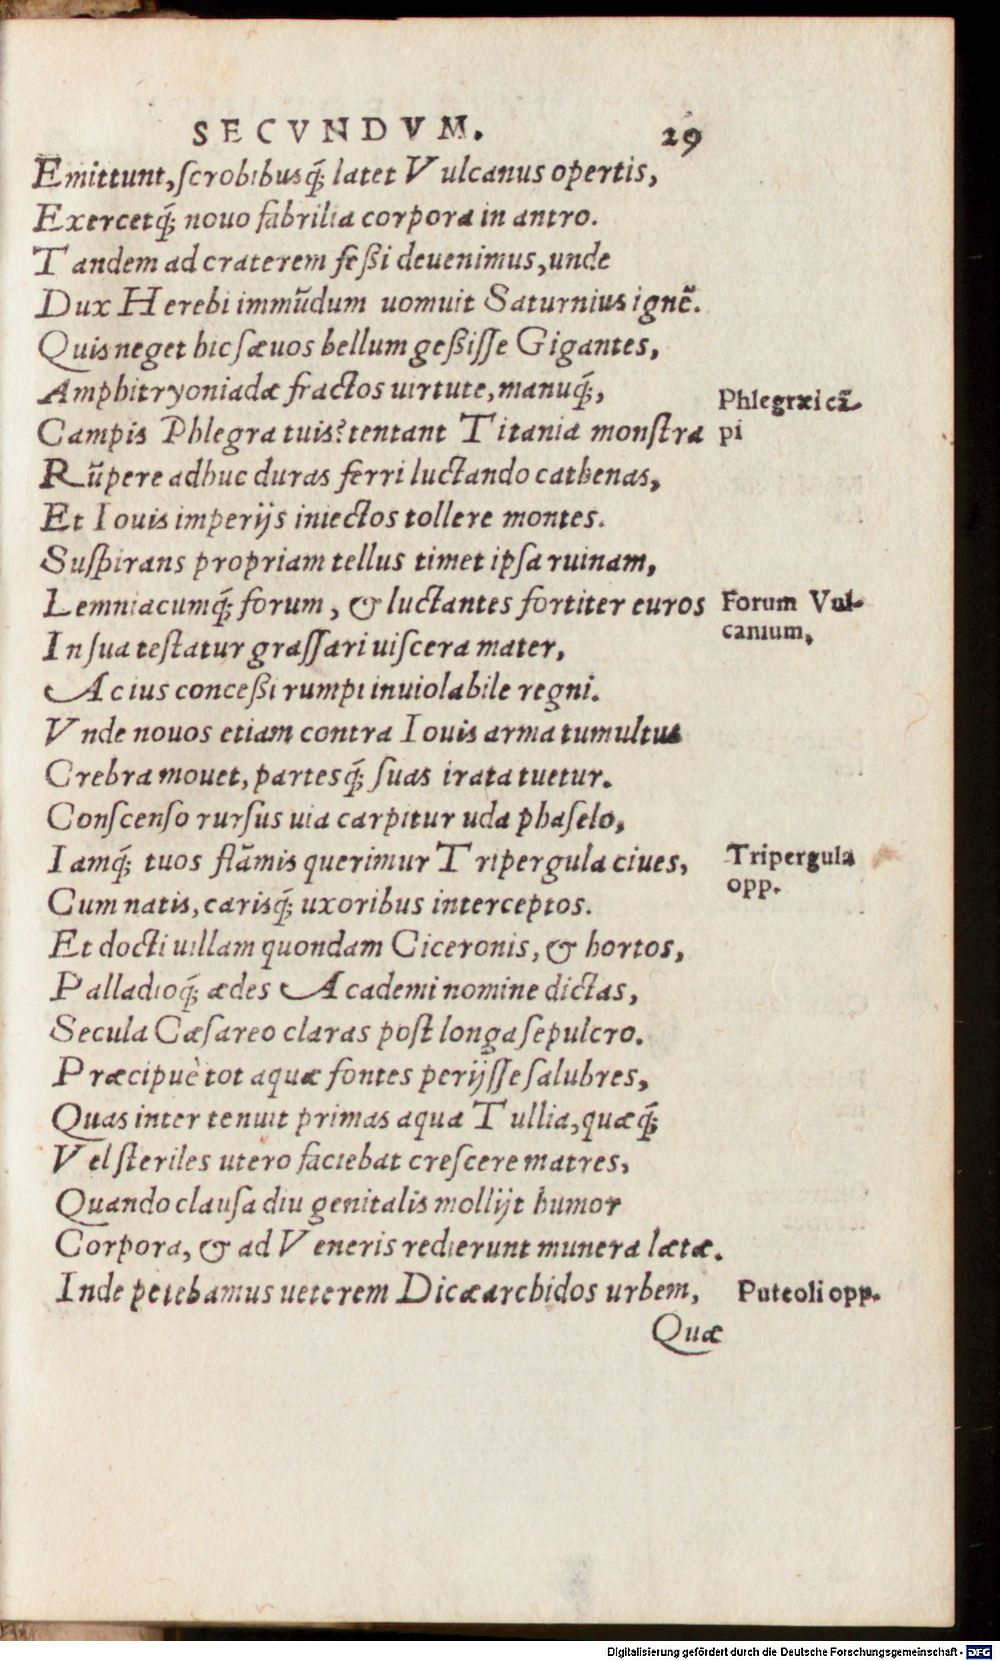 SECVNDVM. 29
Emittunt, ſcrobibusq́; latet Vulcanus opertis,
Exercetq́; nouo fabrilia corpora in antro.
Tandem ad craterem feßi deuenimus, unde
Dux Herebi immũdum uomuit Saturnius ignẽ.
Quis neget hic ſæuos bellum geßiſſe Gigantes,
Amphitryoniadæ fractos uirtute, manuq́;,
Campis Phlegra tuis? tentant Titania monſtra
Phlegræi cã-
pi
Rũpere adhuc duras ferri luctando cathenas,
Et Iouis imperijs iniectos tollere montes.
Suſpirans propriam tellus timet ipſa ruinam,
Lemniacumq́; forum, & luctantes fortiter euros
Forum Vul-
canium,
In ſua teſtatur graſſari uiſcera mater,
Ac ius conceßi rumpi inuiolabile regni.
Vnde nouos etiam contra Iouis arma tumultus
Crebra mouet, partesq́; ſuas irata tuetur.
Conſcenſo rurſus uia carpitur uda phaſelo,
Iamq́; tuos flãmis querimur Tripergula ciues,
Tripergula
opp.
Cum natis, carisq́; uxoribus interceptos.
Et docti uillam quondam Ciceronis, & hortos,
Palladioq́; ædes Academi nomine dictas,
Secula Cæſareo claras poſt longa ſepulcro.
Præcipuè tot aquæ fontes perijſſe ſalubres,
Quas inter tenuit primas aqua Tullia, quæq́;
Vel ſteriles utero faciebat creſcere matres,
Quando clauſa diu genitalis mollijt humor
Corpora, & ad Veneris redierunt munera lætæ.
Inde petebamus ueterem Dicæarchidos urbem,
Puteoli opp.
Quæ
Digitalisierung gefördert durch die Deutsche Forschungsgemeinschaft - DFG